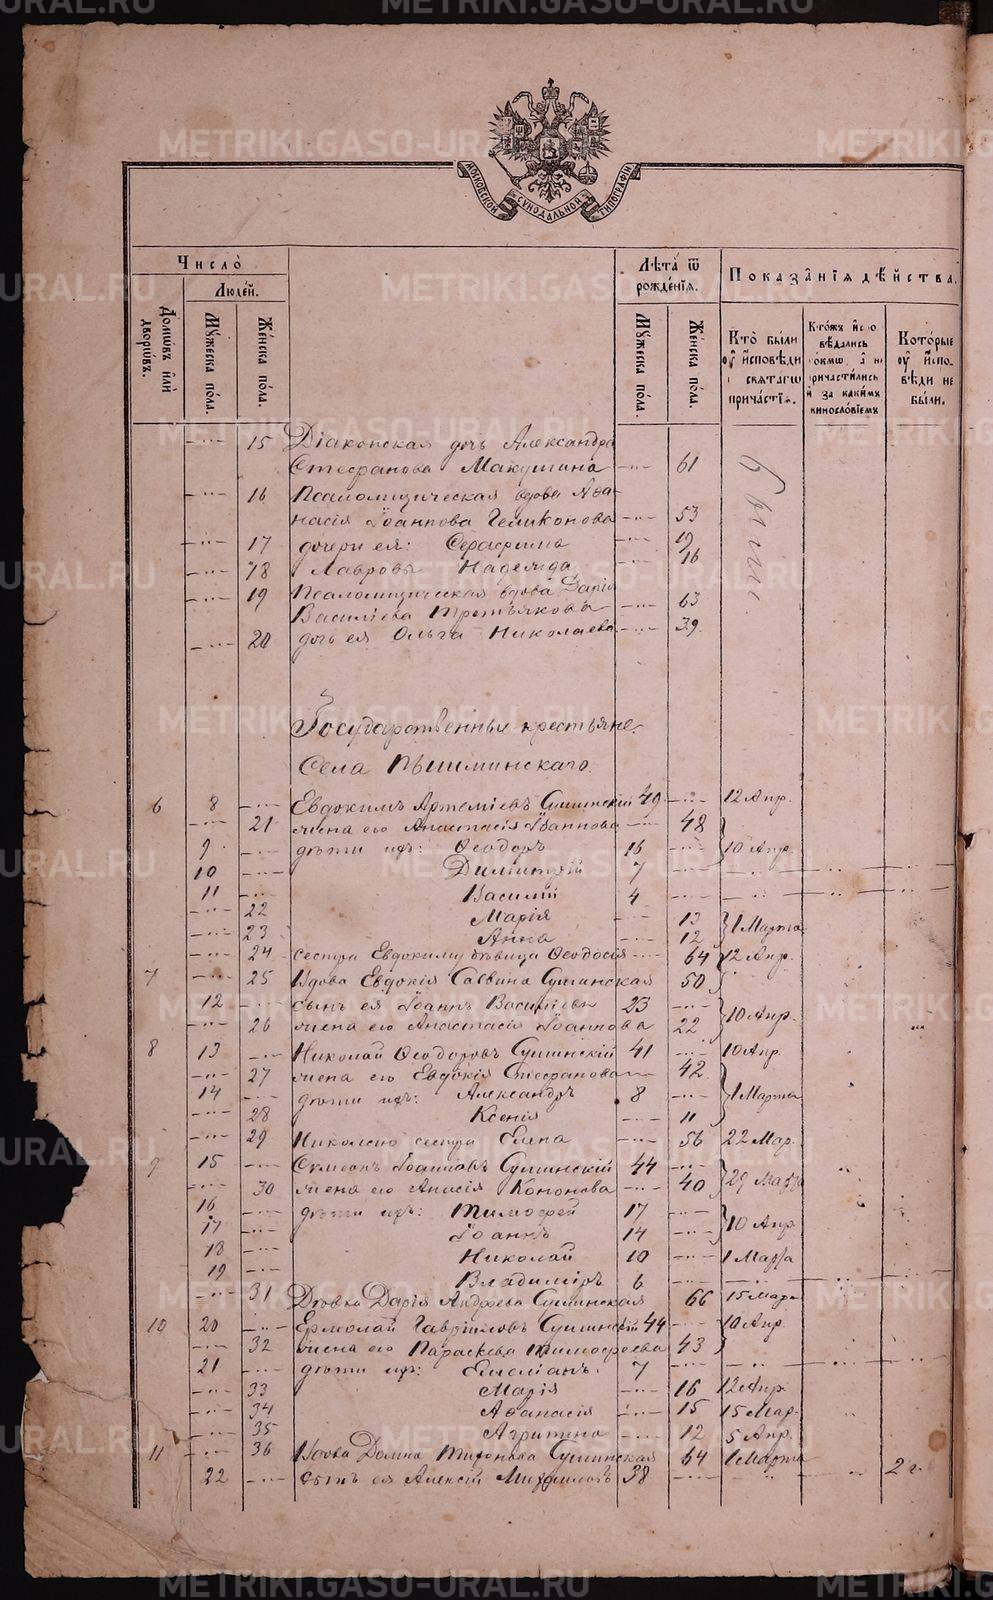 METRIKI.GASO-URAL.RU
МОСКОВСКОЙ СѴНОДАЛЬНОЙ ТИПОГРАФІИ
Число̀
Людéй.
Домѡ́въ и҆лѝ дворѡ́въ.
Мꙋ́жеска по́ла.
Же́нска по́ла.
Лѣ́та ѿ рожде́нїѧ.
Мꙋ́жеска по́ла.
Же́нска по́ла.
Показа́нїѧ дѣ́йства.
Кто̀ бы́ли оу҆ и҆сповѣ́ди и҆ свѧта́гѡ прича́стїѧ.
Которые оу҆ и҆сповѣ́ди не бы́ли.
15 Діаконская дочь Александра
Стефанова Макушина -"- 61 Были
-"- 16 Псаломщическая вдова Афа-
насія Іоаннова Геликонова -"- 53
-"- 17 дочери ея: Серафима -"- 19
-"- 18 Лавровы Надежда -"- 16
-"- 19 Псаломщическая вдова Дарія
Василіева Третьякова -"- 63
-"- 20 дочь ея Ольга Николаева -"- 39.
Государственные крестьяне
Села Пышминскаго.
6 8 -"- Евдокимъ Артеміевъ Сушинскій 49 -"- 12 Апр.
-"- 21 жена его Анастасія Іоаннова -"- 48
9 -"- дѣти ихъ: Ѳеодоръ 16 -"- 10 Апр.
10 -"- Димитрій 7 -"-
11 -"- Василій 4 -"-
-"- 22 Марія -"- 13 1 Марта
-"- 23 Анна -"- 12
-"- 24 сестра Евдокиму дѣвица Ѳеодосія -"- 64 12 Апр.
7 -"- 25 Вдова Евдокія Саввина Сушинская 50
12 -"- сынъ ея Іоаннъ Василіевъ 23 -"- 10 Апр.
-"- 26 жена его Анастасія Іоаннова 22
8 13 -"- Николай Ѳеодоровъ Сушинскій 41 -"- 10 Апр.
-"- 27 жена его Евдокія Стефанова -"- 42
14 -"- дѣти ихъ: Александръ 8 -"- 1 Марта
-"- 28 Ксенія -"- 11
-"- 29 Николаю сестра Елена -"- 56 22 Мар.
9 15 -"- Симеонъ Іоанновъ Сушинскій 44 -"- 29 Марта
-"- 30 жена его Анисія Кононова -"- 40
16 -"- дѣти ихъ: Тимофей 17 -"-
17 -"- Іоаннъ 14 -"- 10 Апр.
18 -"- Николай 10 -"- 1 Марта
19 -"- Владиміръ 6 -"-
-"- 31 Дѣвка Дарія Андреева Сушинская 66 15 Мара
10 20 -"- Ермолай Гавриловъ Сушинскій 44 -"- 10 Апр.
-"- 32 жена его Параскева Тимофеева 43
21 -"- дѣти ихъ: Емеліанъ. 7 -"-
-"- 33 Марія -"- 16 12 Апр.
-"- 34 Афанасія -"- 15 15 Мар.
-"- 35 Агрипина -"- 12 5 Апр.
11 -"- 36 Вдова Домна Тихонова Сушинская 64 1 Марта
22 -"- сынъ ея Алексій Михаиловъ 38 -"- 2 г.